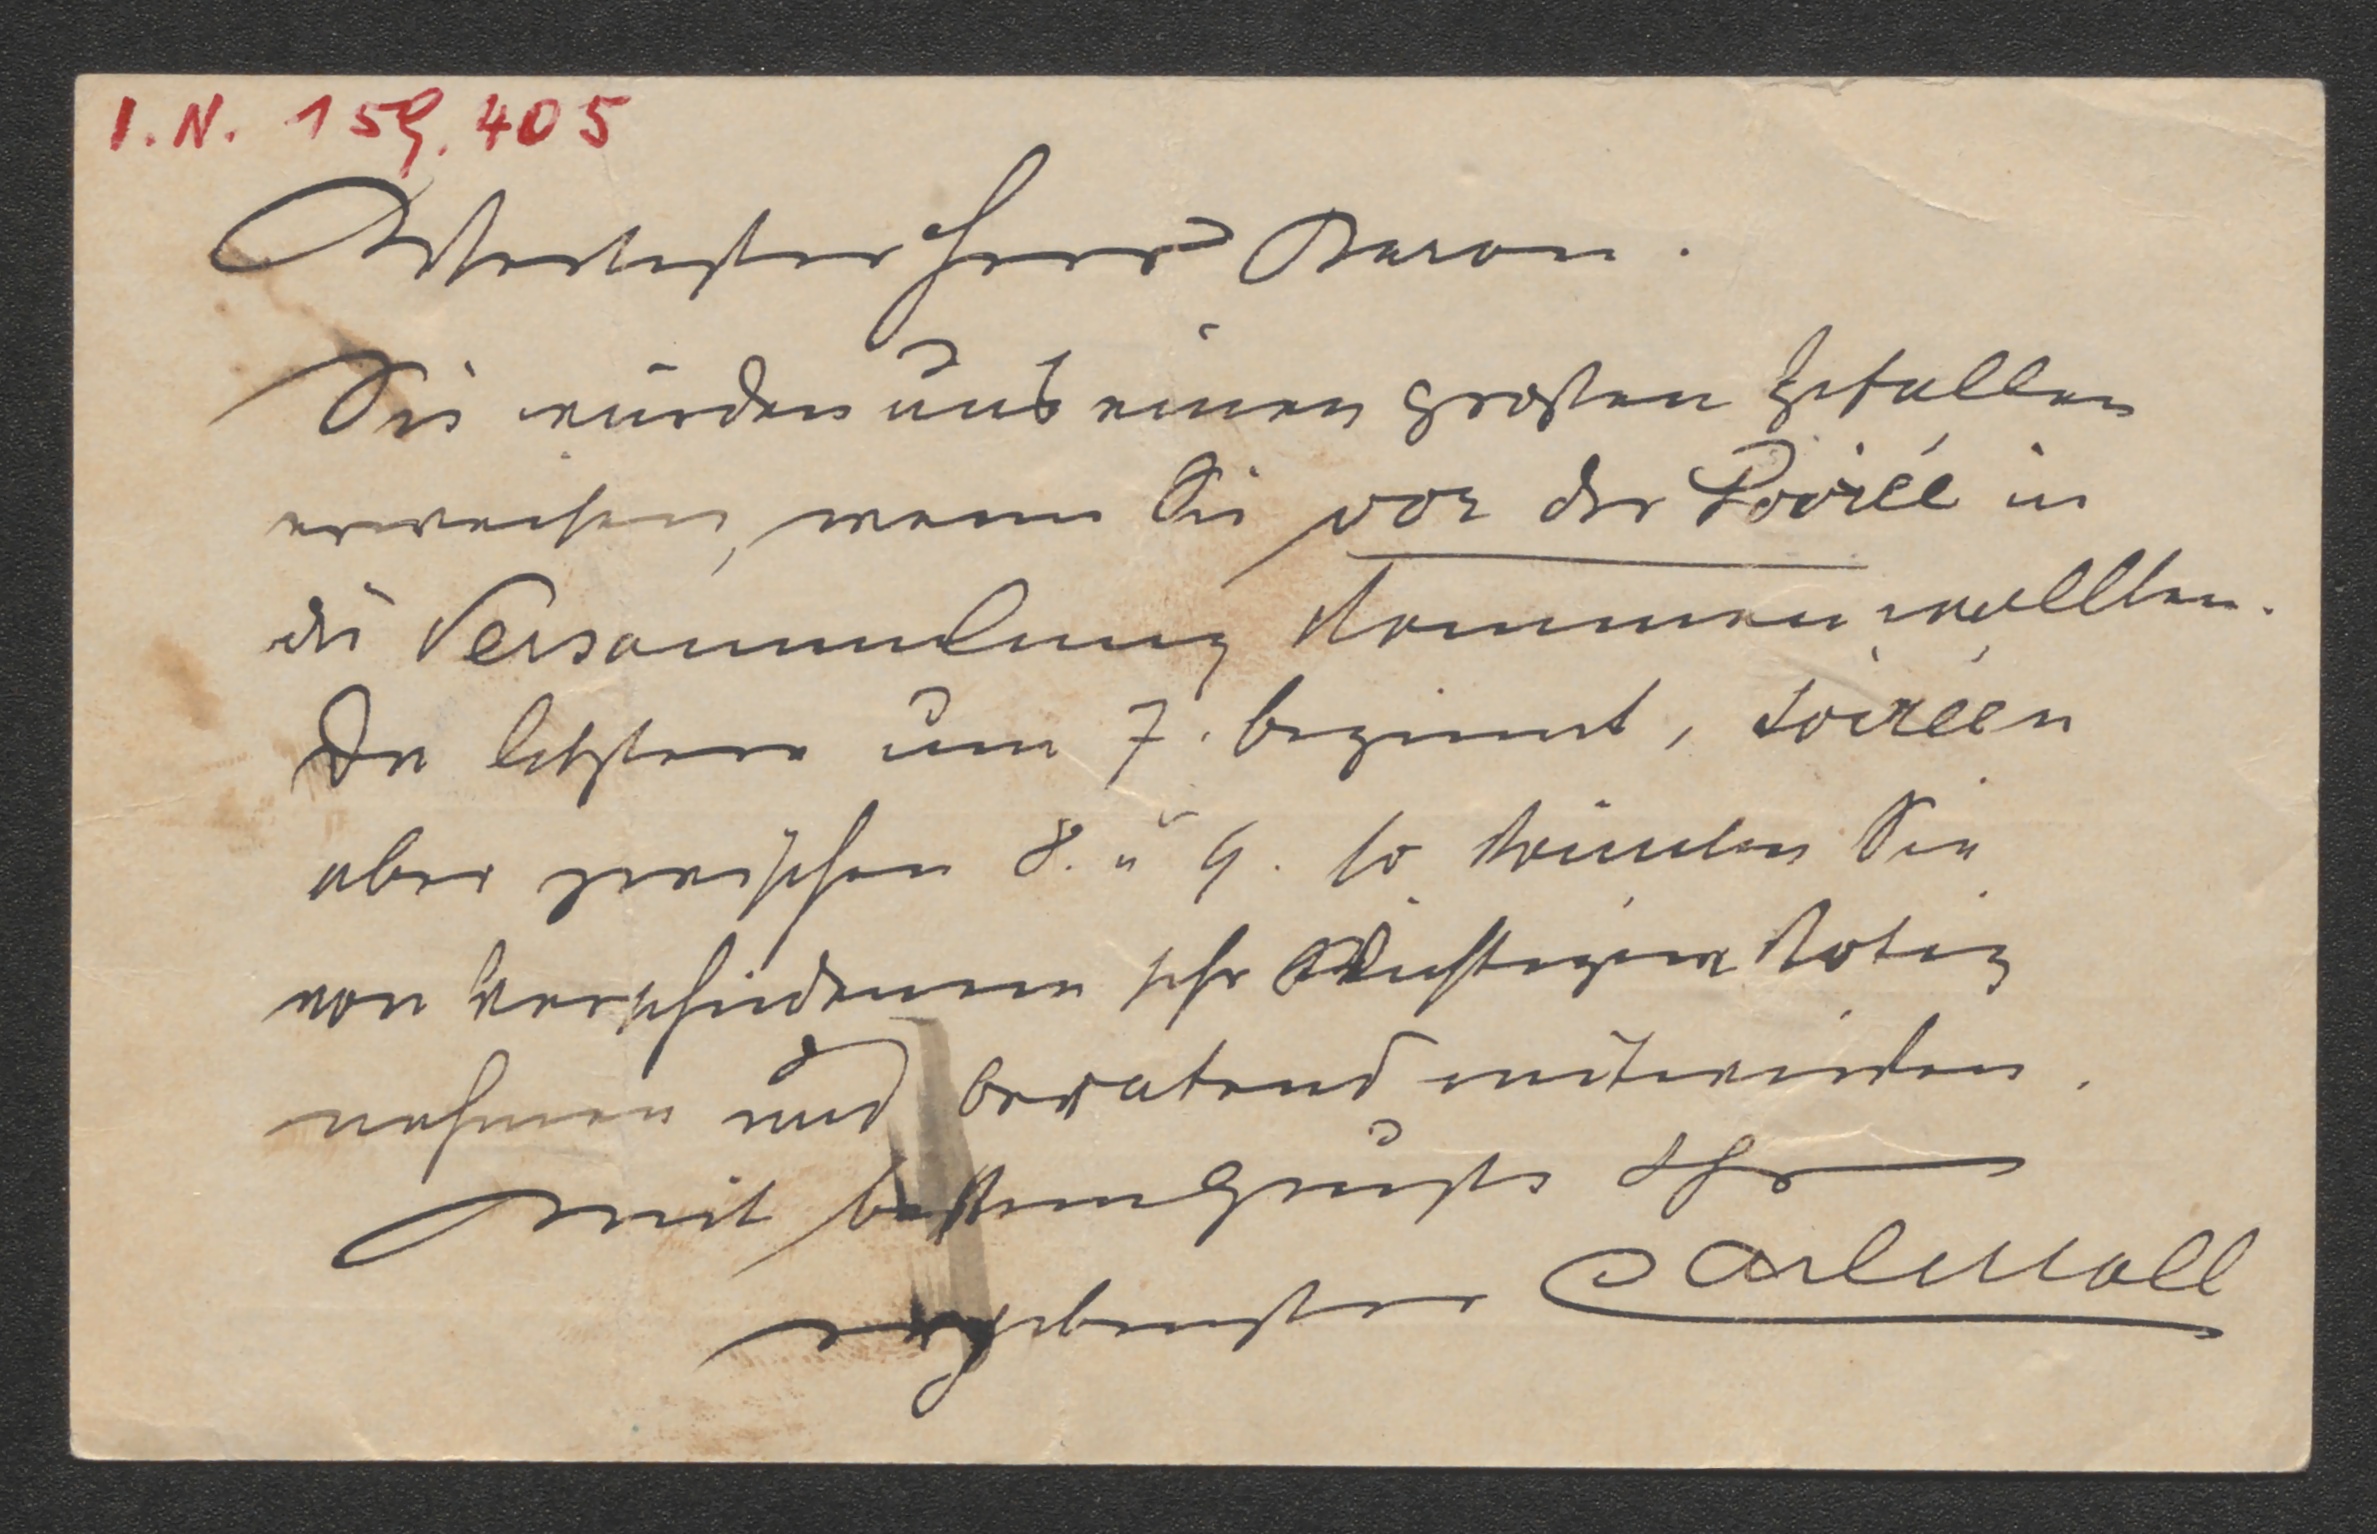 I.N. 159.405
Verehrtester Herr Baron.
Sie würden uns einen großen Gefallen
erweisen, wenn Sie vor der Soirée in
die Versammlung kommen wollten.
Da letztere um 7. beginnt, Soiréen
aber zwischen 8. u 9. so könnten Sie
von verschiedenem sehr Wichtigem Notiz
nehmen und beratend mitwirken.
Mit bestem Gruße Ihr
ergebenster Carl Moll